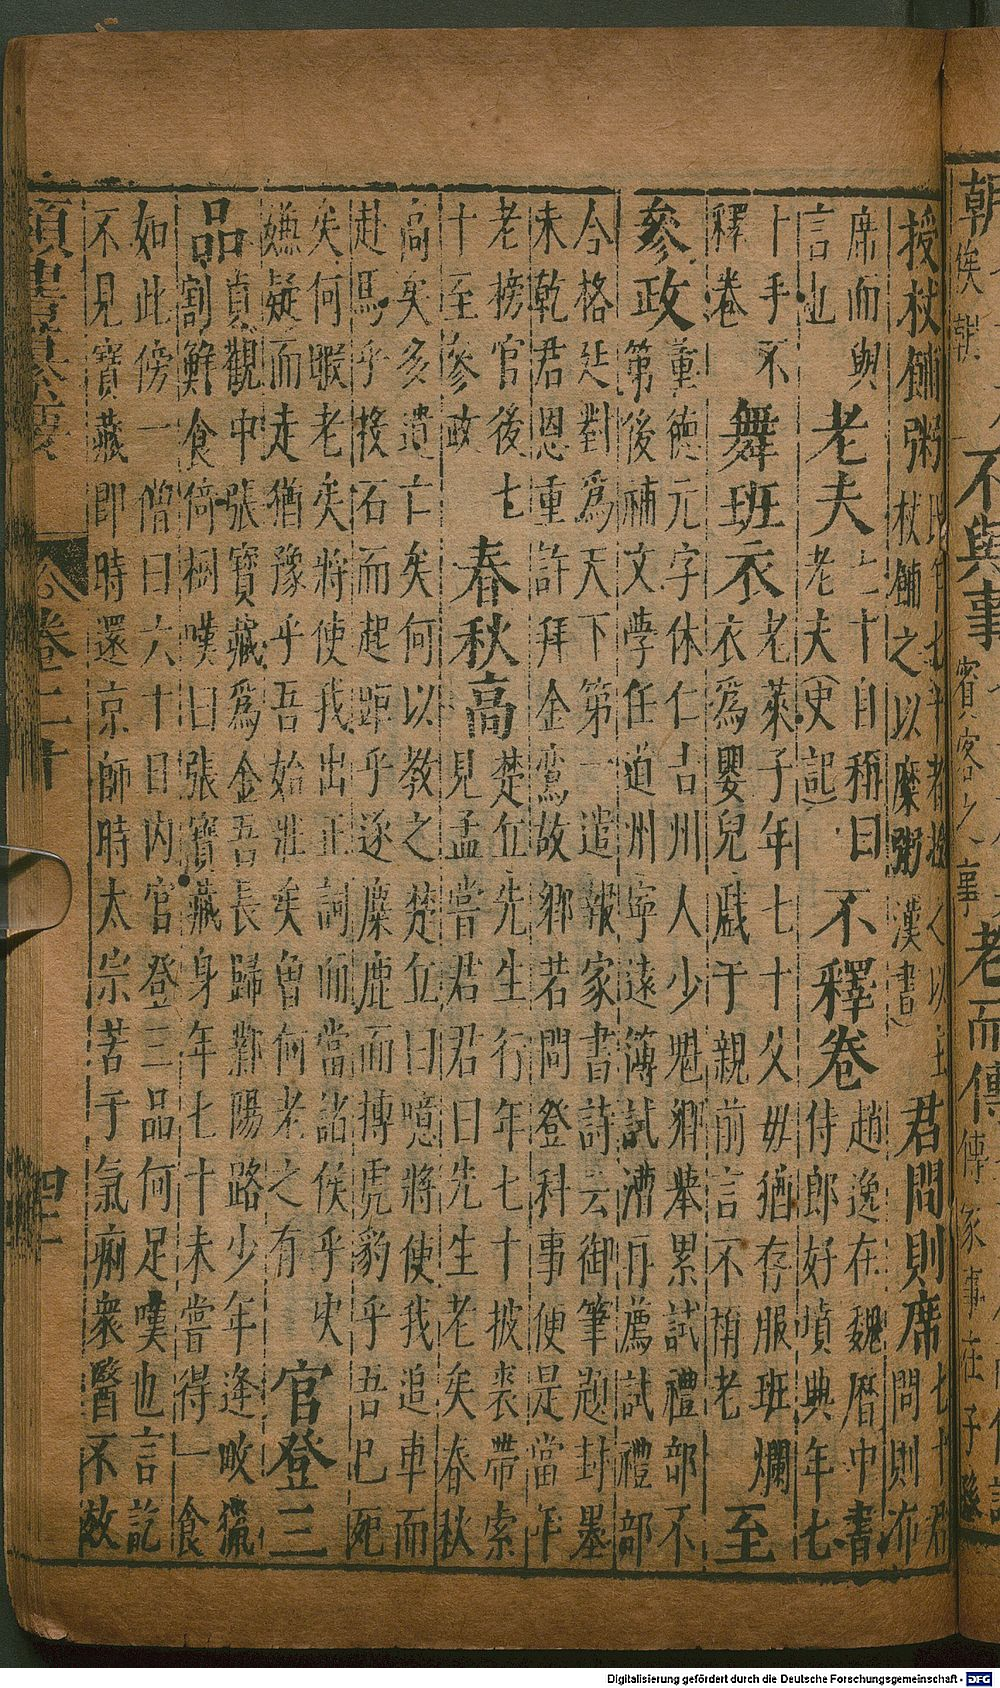 朝
俟朝
不與事
賓客之事
老而傳
傳家事在子孫
授杖餔粥
民年七十者授之以玉
杖餔之以糜粥(漢書)
君問則席
七十君
問則布
席而與
言也
老夫
七十自稱曰
老夫(史記)
不釋卷
趙逸在魏曆中書
侍郎好墳典年七
十手不
釋卷
舞班衣
老萊子年七十父母猶存服班斕
衣為嬰兒戲于親前言不稱老
至
參政
董德元字休仁吉州人少魁鄉舉累試禮部不
第後補文學任道州寧遠簿試漕再薦試禮部
合格廷對為天下第一遣報家書詩云御筆題封墨
未乾君恩重許拜金鑾故鄉若問登科事便是當年
老榜官後七
十至參政
春秋高
楚丘先生行年七十披裘帶索
見孟嘗君君曰先生老矣春秋
高矣多遺亡矣何以教之楚丘曰噫將使我追車而
赴馬乎投石而起距乎逐麋鹿而搏虎豹乎吾已死
矣何暇老矣將使我出正詞而當諸侯乎决
嫌疑而走猶豫乎吾始壯矣曾何老之有
官登三
品
貞觀中張寶藏為金吾長歸鄰陽路少年逢畋獵
割鮮食倚樹嘆曰張寶藏身年七十未嘗得一食
如此傍一僧曰六十日内官登三品何足嘆也言訖
不見寶藏即時還京師時太宗苦于氣痢衆醫不效
類書纂要
卷二十
Digitalisierung gefördert durch die Deutsche Forschungsgemeinschaft - DFG